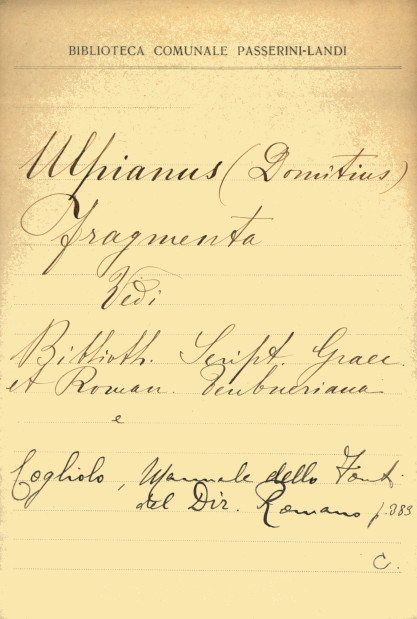 BIBLIOTECA COMUNALE PASSERINI-LANDI
Ulpianus (Domitius)
Fragmenta
Vedi
Biblioth. Script. Graec.
et Roman. Teubneriana
e
Cogliolo, Manuale delle Fonti
del Dir. Romano p. 383
C.